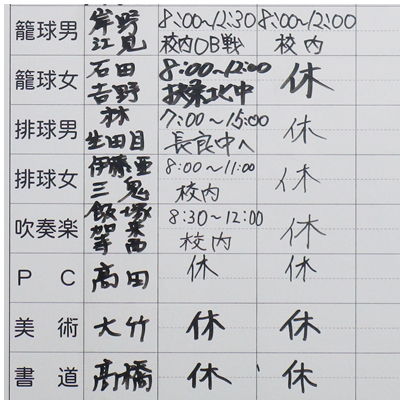 籠球男 岸野 8:00~12:30 8:00~12:00
江見 校内OB戦 校内
籠球女 石田 8:00~12:00 休
吉野 扶桑北中
排球男 林 7:00~15:00 休
生田目 長良中へ
排球女 伊藤亜 8:00~11:00 休
三鬼 校内
吹奏楽 飯塚 8:30~12:00 休
加来 校内
寺西
PC 高田 休 休
美術 大竹 休 休
書道 髙橋 休 休